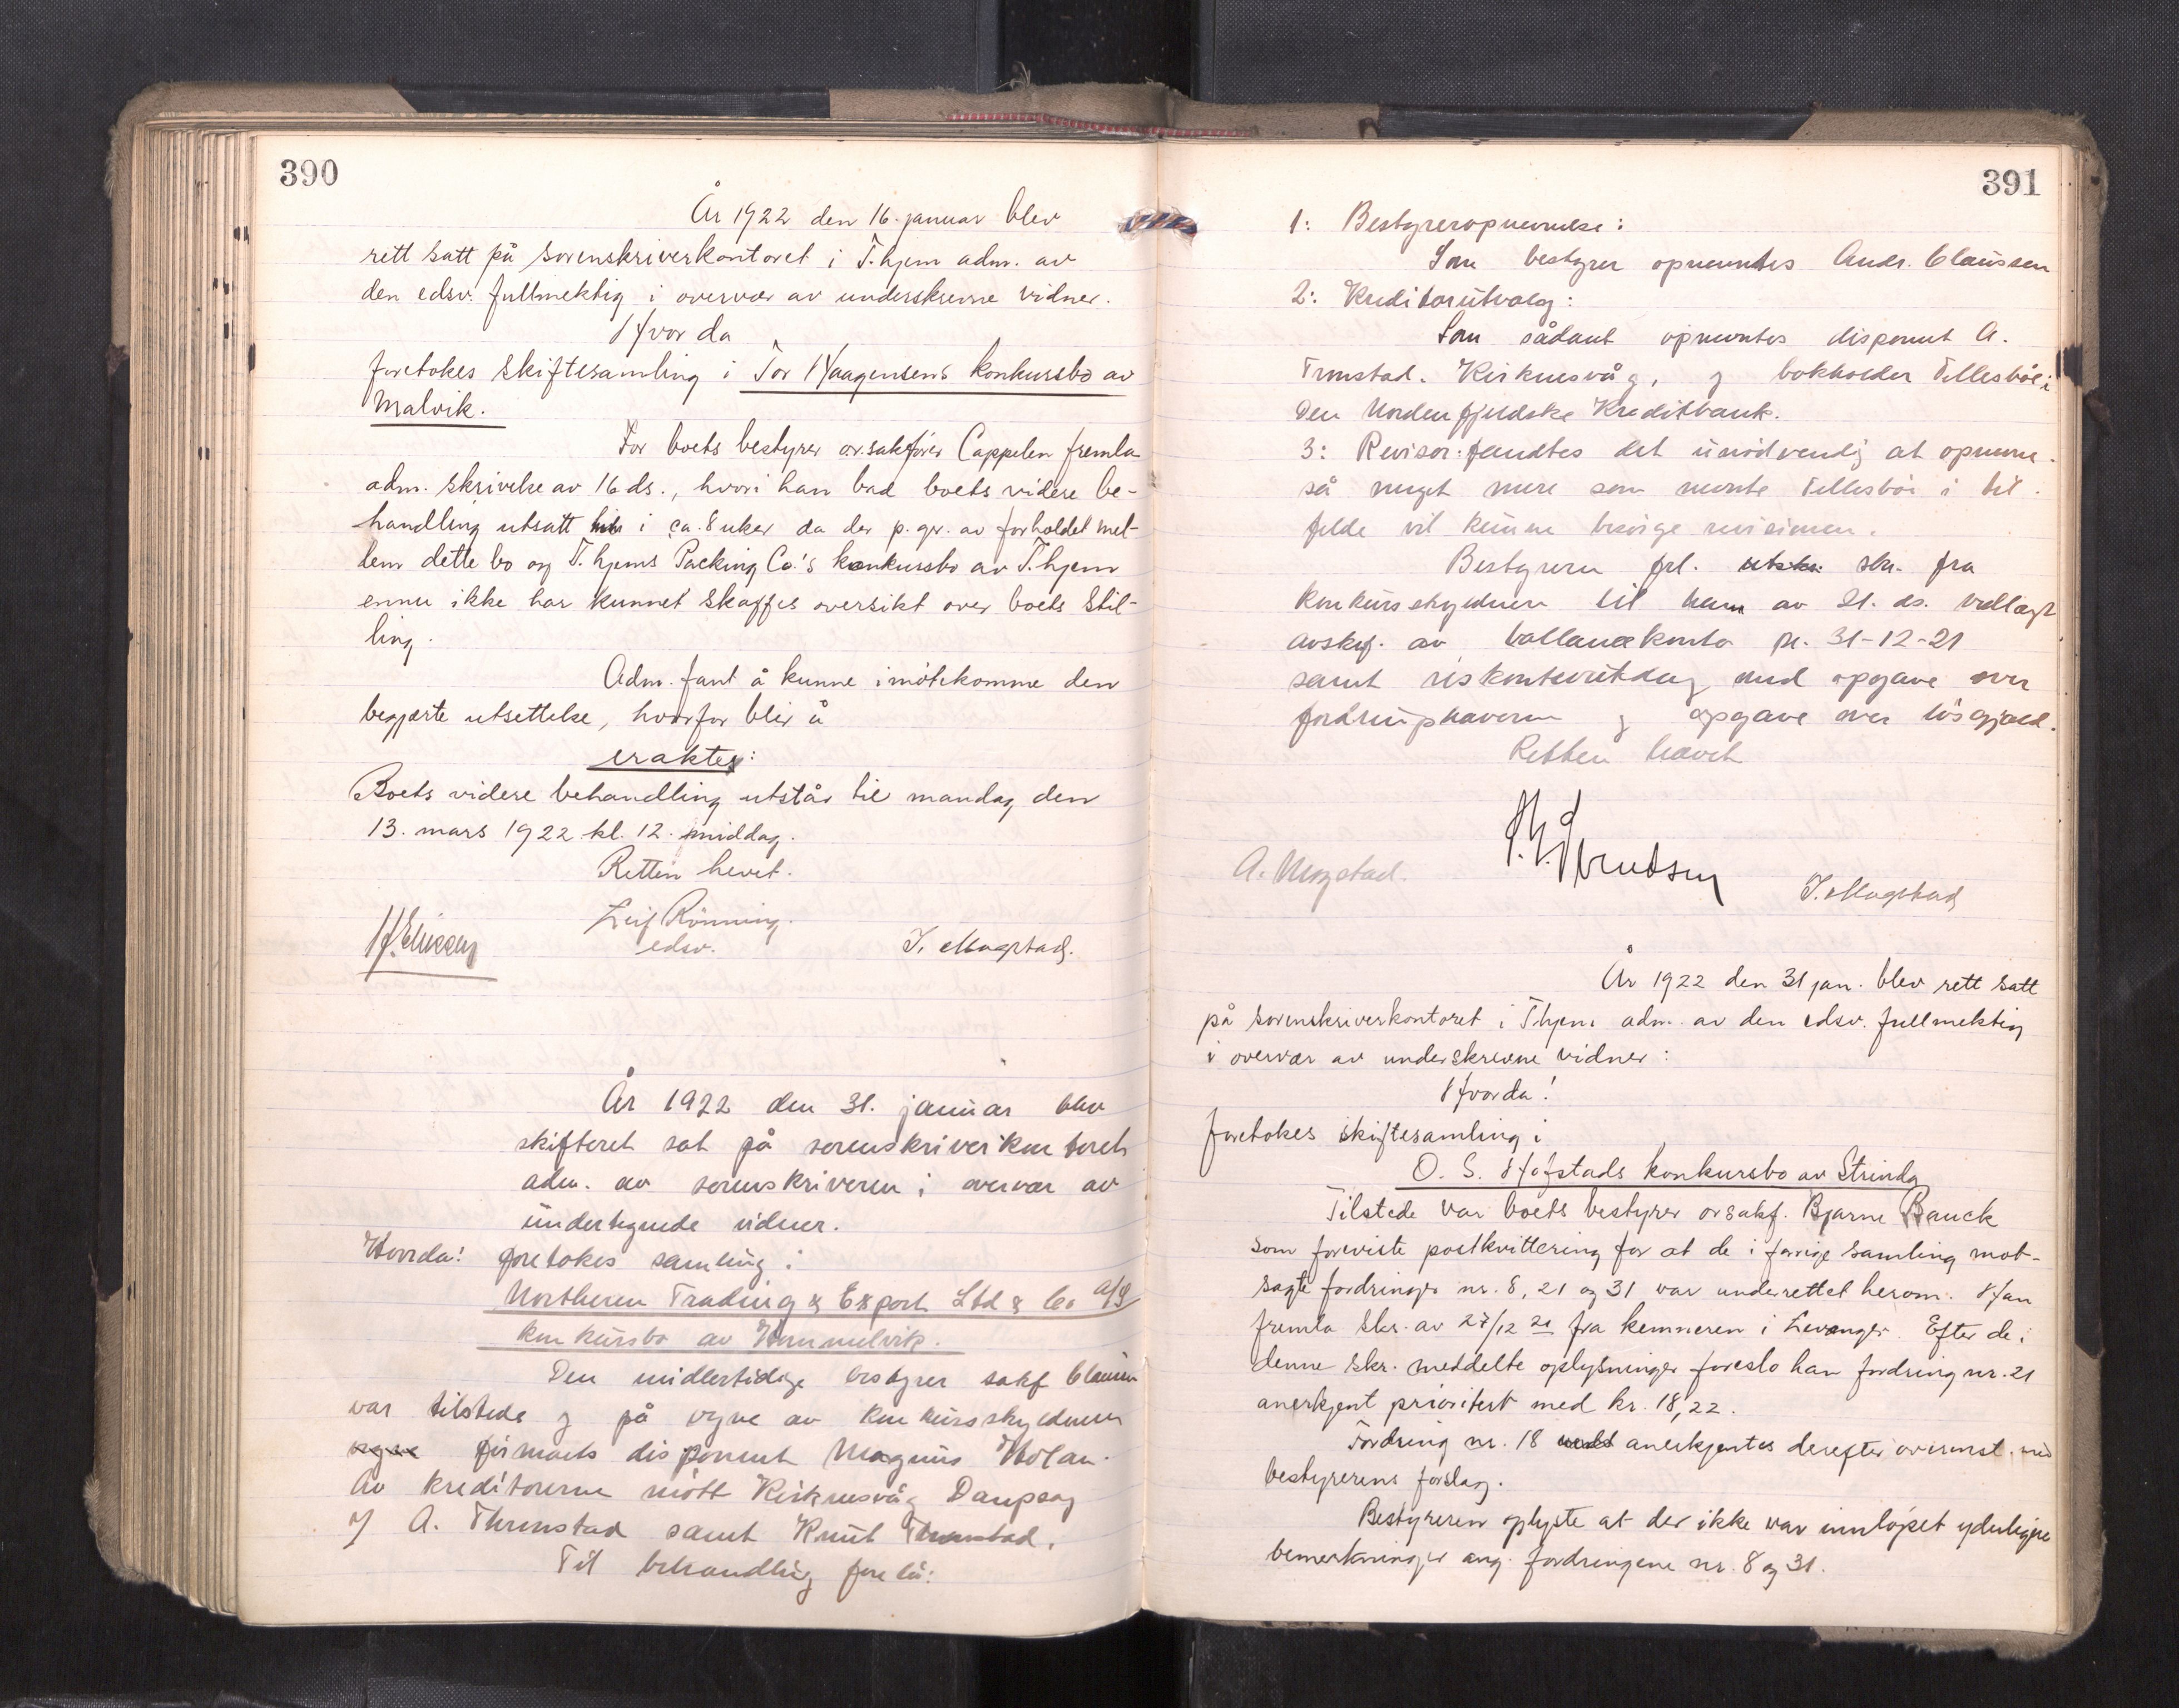 390
År 1922 den 16. januar blev
rett satt på sorenskriverkontoret i T.hjem adm. av
den edsv. fullmektig i overvær av underskrevne vidner.
Hvorda
foretokes skiftesamling i Tor Haagensens konkursbo av
Malvik.
For boets bestyrer o.r.sakfører Cappelen fremla
adm. skrivelse av 16 ds., hvori han bad boets videre be-
handling utsatt i ca. 8 uker da der p. gr. av forholdet mel-
lem dette bo og T.hjems Packing Co.'s konkursbo av T.hjem
ennu ikke har kunnet skaffes oversikt over boets stil-
ling.
Adm. fant å kunne imøtekomme den
begjærte utsettelse, hvorfor blir å
erakte:
Boets videre behandling utstår til mandag den
13. mars 1922 kl. 12 middag.
Retten hevet.
Leif Rønning.
edsv.
J. Mogstad.
År 1922 den 31. januar blev
skifteret sat på sorenskriverkontoret
adm. av sorenskriveren i overvær av
undertegnede vidner.
Hvorda! foretokes samling i
Northern Trading & Export Ltd & Co A/S
konkursbo av Hommelvik.
Den midlertidige bestyrer sakf Claussen
var tilstede og på vegne av konkursskyldneren
firmaets disponent Magnus
Av kreditorerne møtt Kirknesvåg Dampsag
v/ A. Thronstad samt Knut Thronstad.
Til behandling forelå:
391
1: Bestyreropnevnelse:
Som bestyrer opnevntes Andr. Claussen
2: Kreditorutvalg:
Som sådant opnevntes disponent A.
Tronstad. Kirknesvåg, og bokholder Tellesbø i
Den Nordenfjeldske Kreditbank.
3: Revisor: fandtes det unødvendig at opnevne.
så meget mere som nevnte Tellesbø i til-
felde vil kunne besørge revisionen.
Bestyreren frl. skr. fra
konkursskyldneren til ham av 21. ds. vedlagt
avskrf. av ballancekonto pr. 31-12-21
samt riskontoutdrag med opgave over
fordringshaverne og opgave over løsgjæld.
Retten hævet
A. Mogstad.
J. Mogstad
År 1922 den 31 jan. blev rett satt
på sorenskriverkontoret i T.hjem adm. av den edsv. fullmektig
i overvær av underskrevne vidner:
Hvorda!
foretokes skiftesamling i
O. S. Hofstads konkursbo av Strinda
Tilstede var boets bestyrer orsakf. Bjarne Bauck
som foreviste postkvittering for at de i forrige samling mot-
sagte fordringer nr. 8, 21 og 31 var underrettet herom. Han
fremla skr. av 27/12 21 fra kemneren i Levanger. Efter de i
denne skr. meddelte oplysninger foreslo han fordring nr. 21
anerkjent prioritert med kr. 18,22.
Fordring nr. 18 anerkjentes derefter overenst. med
bestyrerens forslag.
Bestyreren oplyste at der ikke var innløpet yderligere
bemerkninger ang. fordringene nr. 8 og 31.